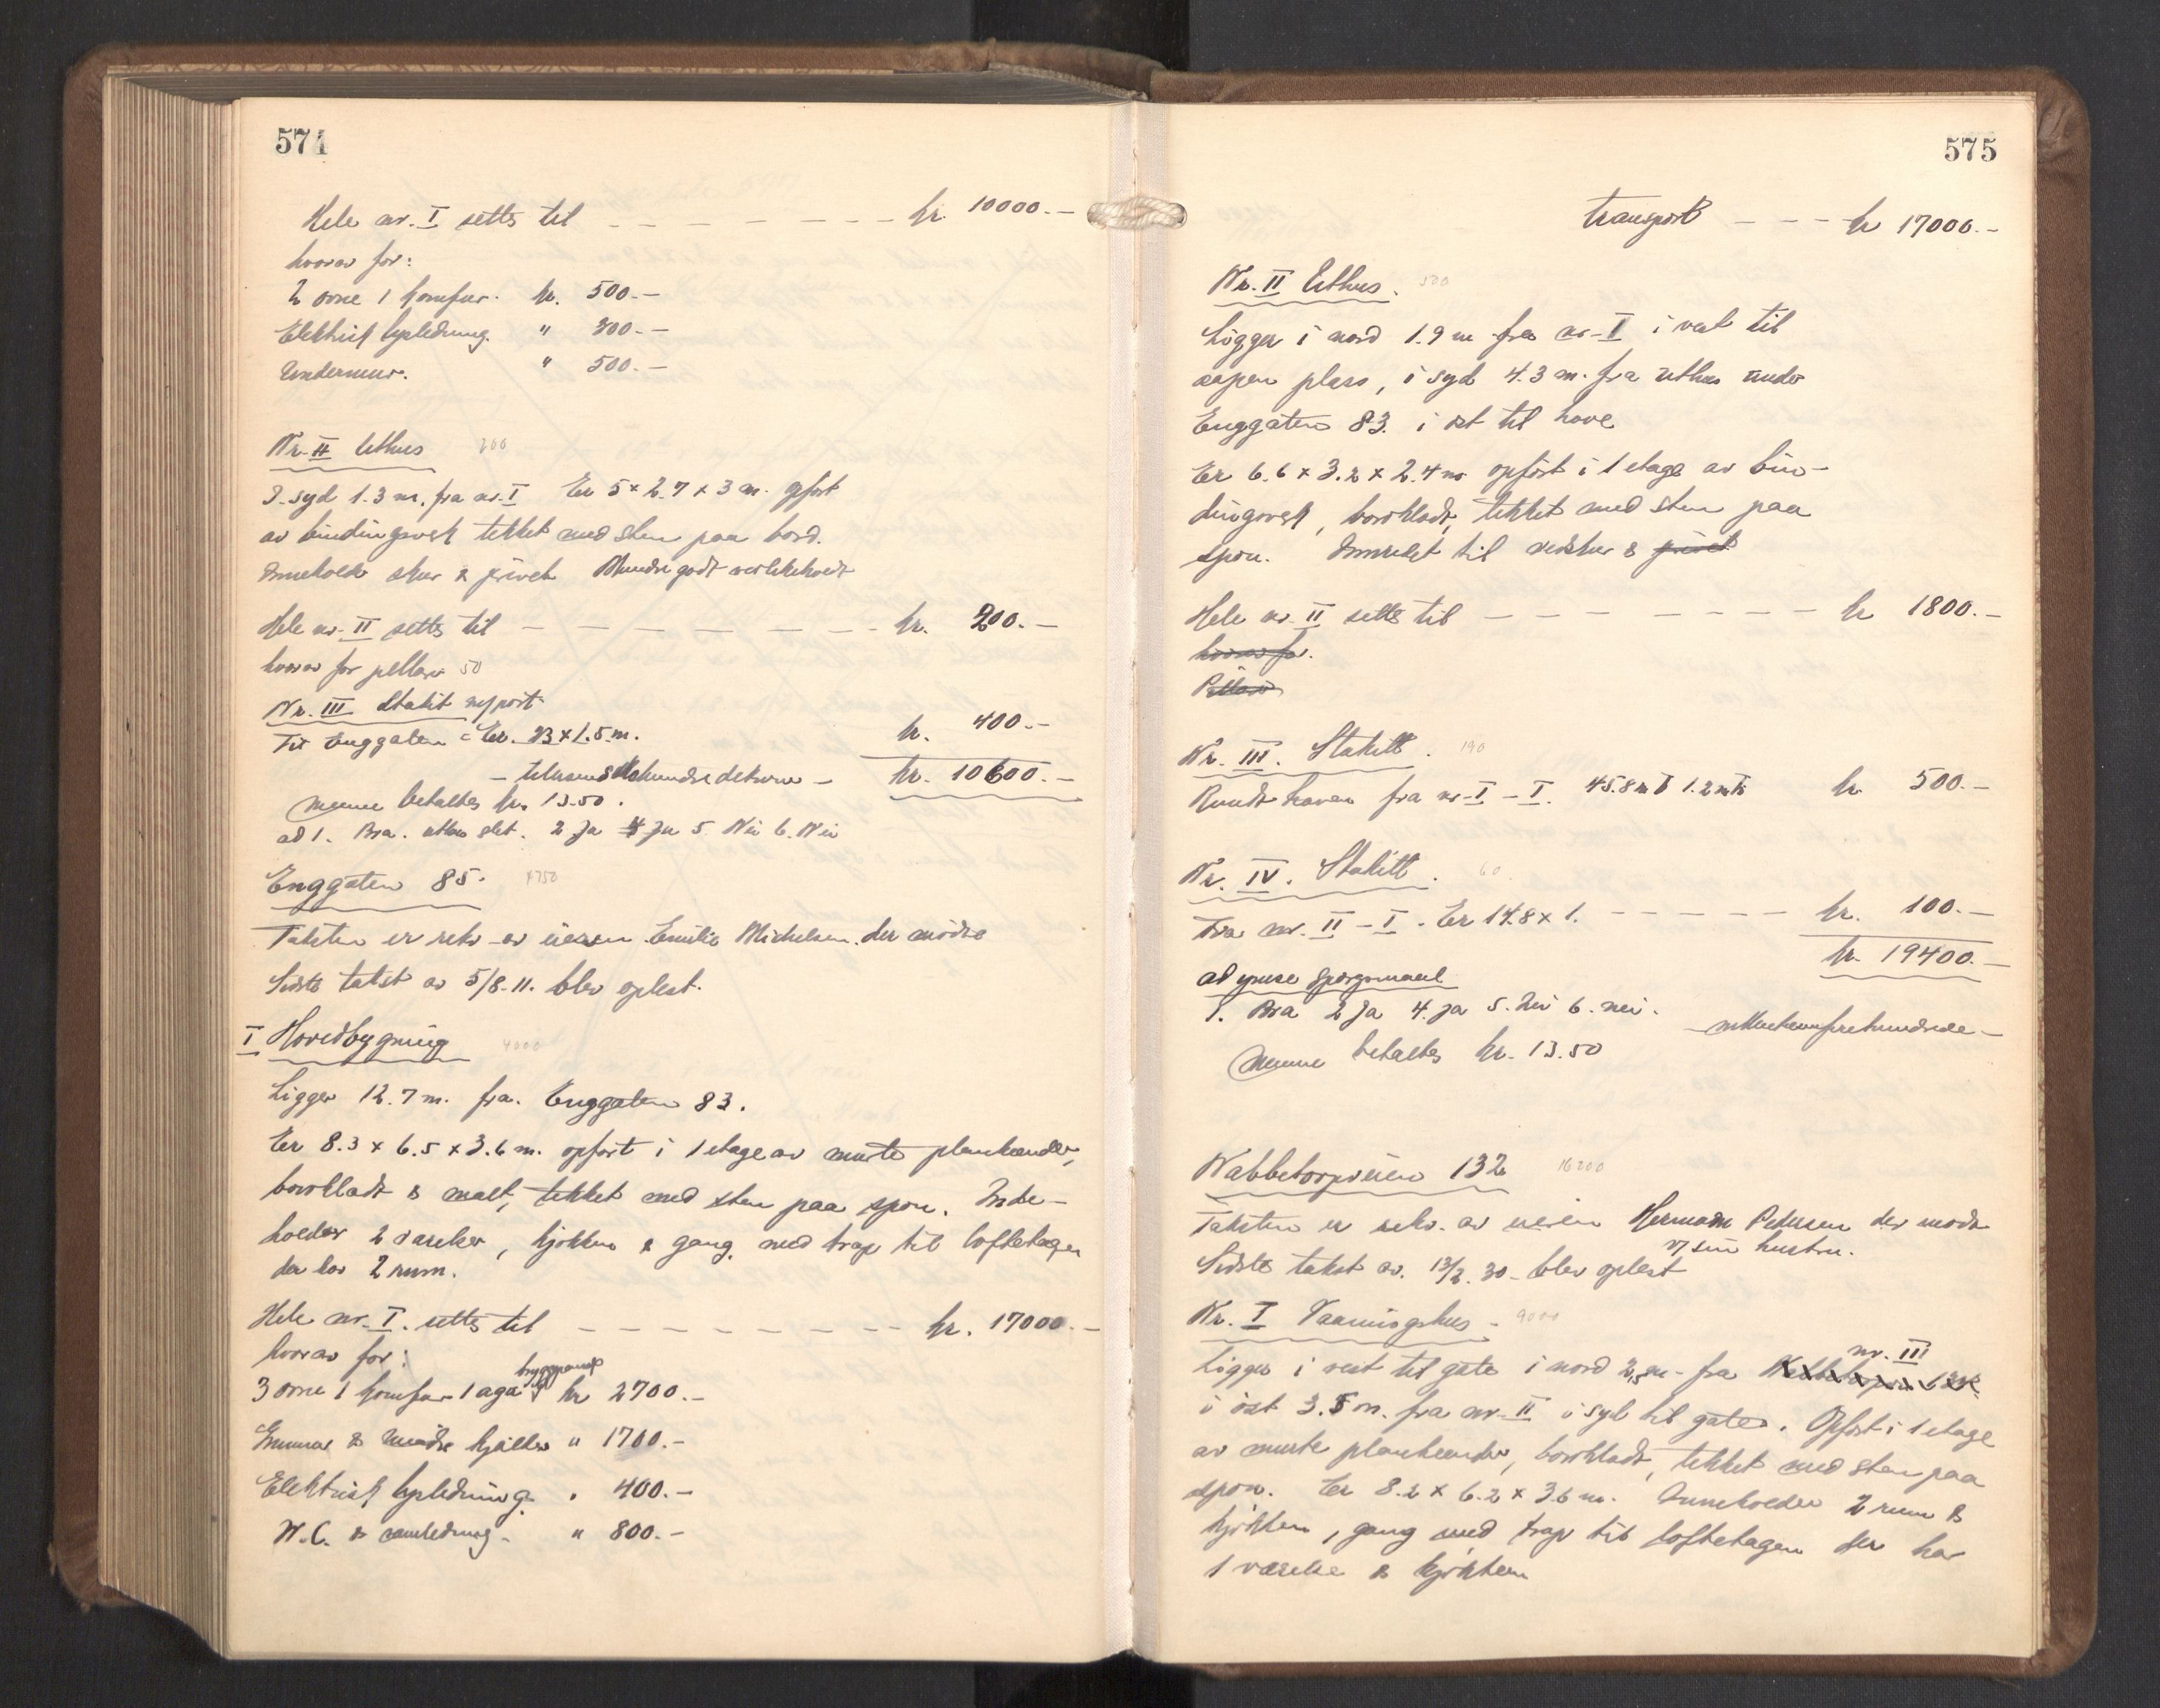 574
Hele nr. I settes til — — — — — — — kr. 10000.—
hvorav for:
2 ovne 1 komfur. kr. 500.—
Elektrisk lysledning. " 300.—
Undermur. " 500.—
Nr. II Uthus 200
I syd 1.3 m. fra nr. I Er 5 x 2.7 x 3 m. opført
av bindingsverk tekket med sten paa bord.
Inneholder skur & privet Mindre godt vedlikeholdt
Hele nr. II settes til — — — — — — — kr. 200.—
hvorav for pellarer 50
Nr. III Stakit m/port
Til Enggaten Er. 23 x 1.5 m. kr. 400.—
— titusensekshundredekroner — kr. 10600.—
Denne betaltes kr. 13.50.
ad 1. Bra. uthus slet. 2 Ja 4 Ja 5. Nei 6. Nei
Enggaten 85. 4750
Taksten er rekv. av eieren Emilie Mickelsen. der mødte
Sidste takst av 5/8-11. blev oplest.
I Hovedbygning 4000
Ligger 12.7 m. fra. Enggaten 83.
Er 8.3 x 6.5 x 3.6 m. opført i 1 etage av murte plankeender,
bordklædt & malt, tekket med sten paa spon. Inde-
holder 2 værelser, kjøkken & gang. med trap til loftetagen
der har 2 rum.
Hele nr. I. settes til — — — — — — — kr. 17000.—
hvorav for: bryggepanne
3 ovne 1 komfur 1 aga & kr 2700.—
Grunmur & mindre kjeller " 1700.—
Elektrisk lysledning. " 400.—
W.C. & vandledning. " 800.—
575
transport — — — kr 17000.—
Nr. II Uthus. 500
Ligger i nord 1.9 m fra nr. I i vest til
aapen plass, i syd 4.3 m. fra uthus under
Enggaten 83. i øst til have
Er 6.6 x 3.2 x 2.4 m opført i 1 etage av bin-
dingsverk, bordklædt, tekket med sten paa
spon. Innredet til vedskur & privet
Hele nr. II settes til — — — — — — — kr 1800.—
hvorav for.
Pellarer
Nr. III. Stakitt. 190
Rundt haven fra nr. I – I. 45.8 m 1.2 m kr 500.—
Nr. IV. Stakitt. 60
Fra nr. II – I. Er 14.8 x 1. — — — — — kr. 100.—
kr. 19400.—
ad spørgsmaal
1. Bra 2 Ja 4. Ja 5. Nei 6. nei.
— nittentusenfirehundrede —
Denne betaltes kr. 13.50
Nabbetorpveien 132 16200
Taksten er rekv. av eieren Herman Petersen der mødte
v/ sin hustru.
Sidste takst av. 13/2. 30 – blev oplest
Nr. I Vaaningshus. 9000
nr. III
Ligger i vest til gate i nord 2,5 m. fra Nabbetorpv. 132
i øst 3.5 m. fra nr. II i syd til gate. Opført i 1 etage
av murte plankeender, bordklædt, tekket med sten paa
spon. Er 8.2 x 6.2 x 3.6 m. Inneholder 2 rum &
kjøkken, gang med trap til loftetagen der har
1 værelse & kjøkken